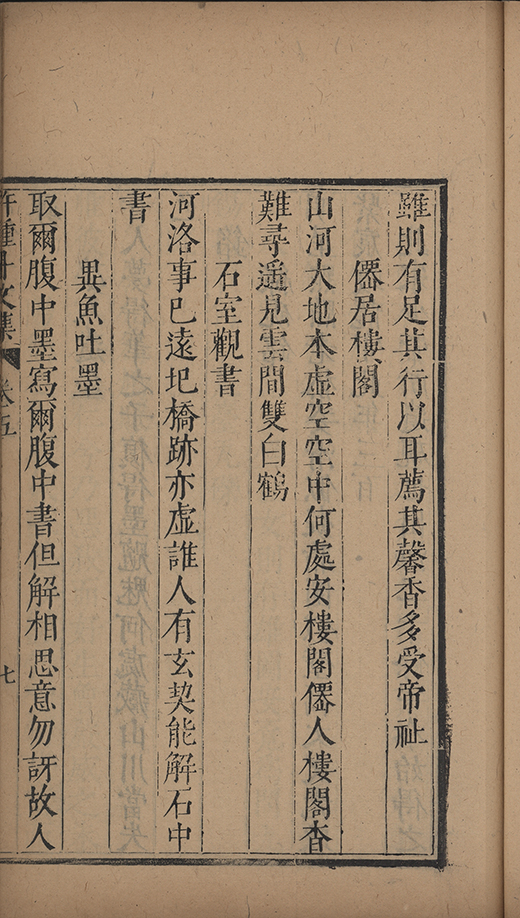 雖則有足其行以耳薦其馨香多受帝祉
僊居樓閣
山河大地本虛空空中何處安樓閣僊人樓閣杳
難尋遥見雲間雙白鶴
石室觀書
河洛事已遠圯橋跡亦虛誰人有玄契能解石中
書
異魚吐墨
取爾腹中墨寫爾腹中書但解相思意勿訝故人
許鍾斗文集 卷五 七